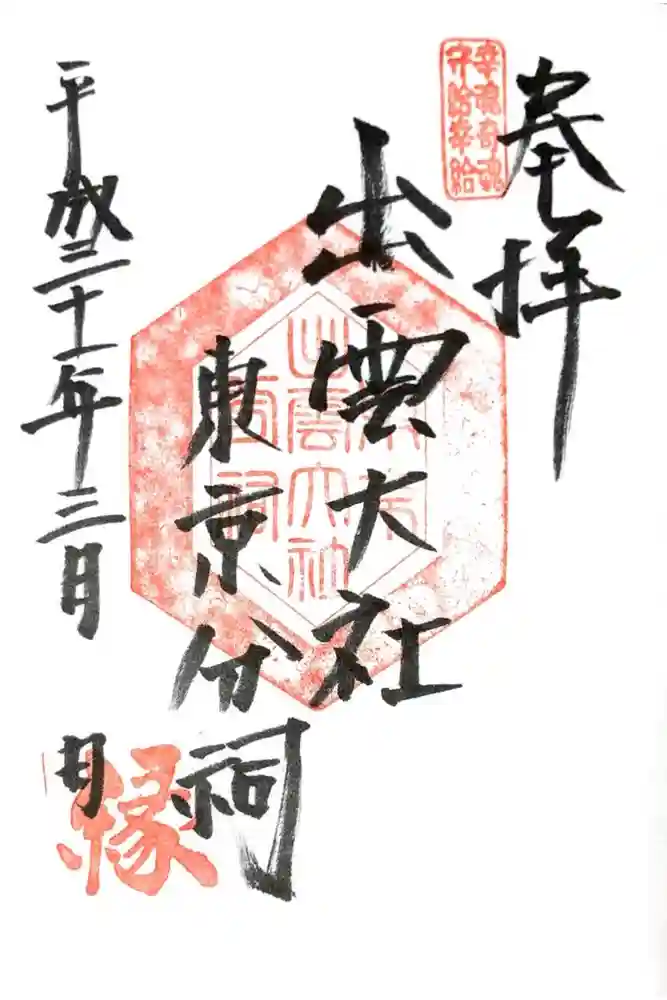 奉拝
幸魂奇魂
守給幸給
出雲大社
東京分祠
出雲大社
平成三十一年三月 日
縁